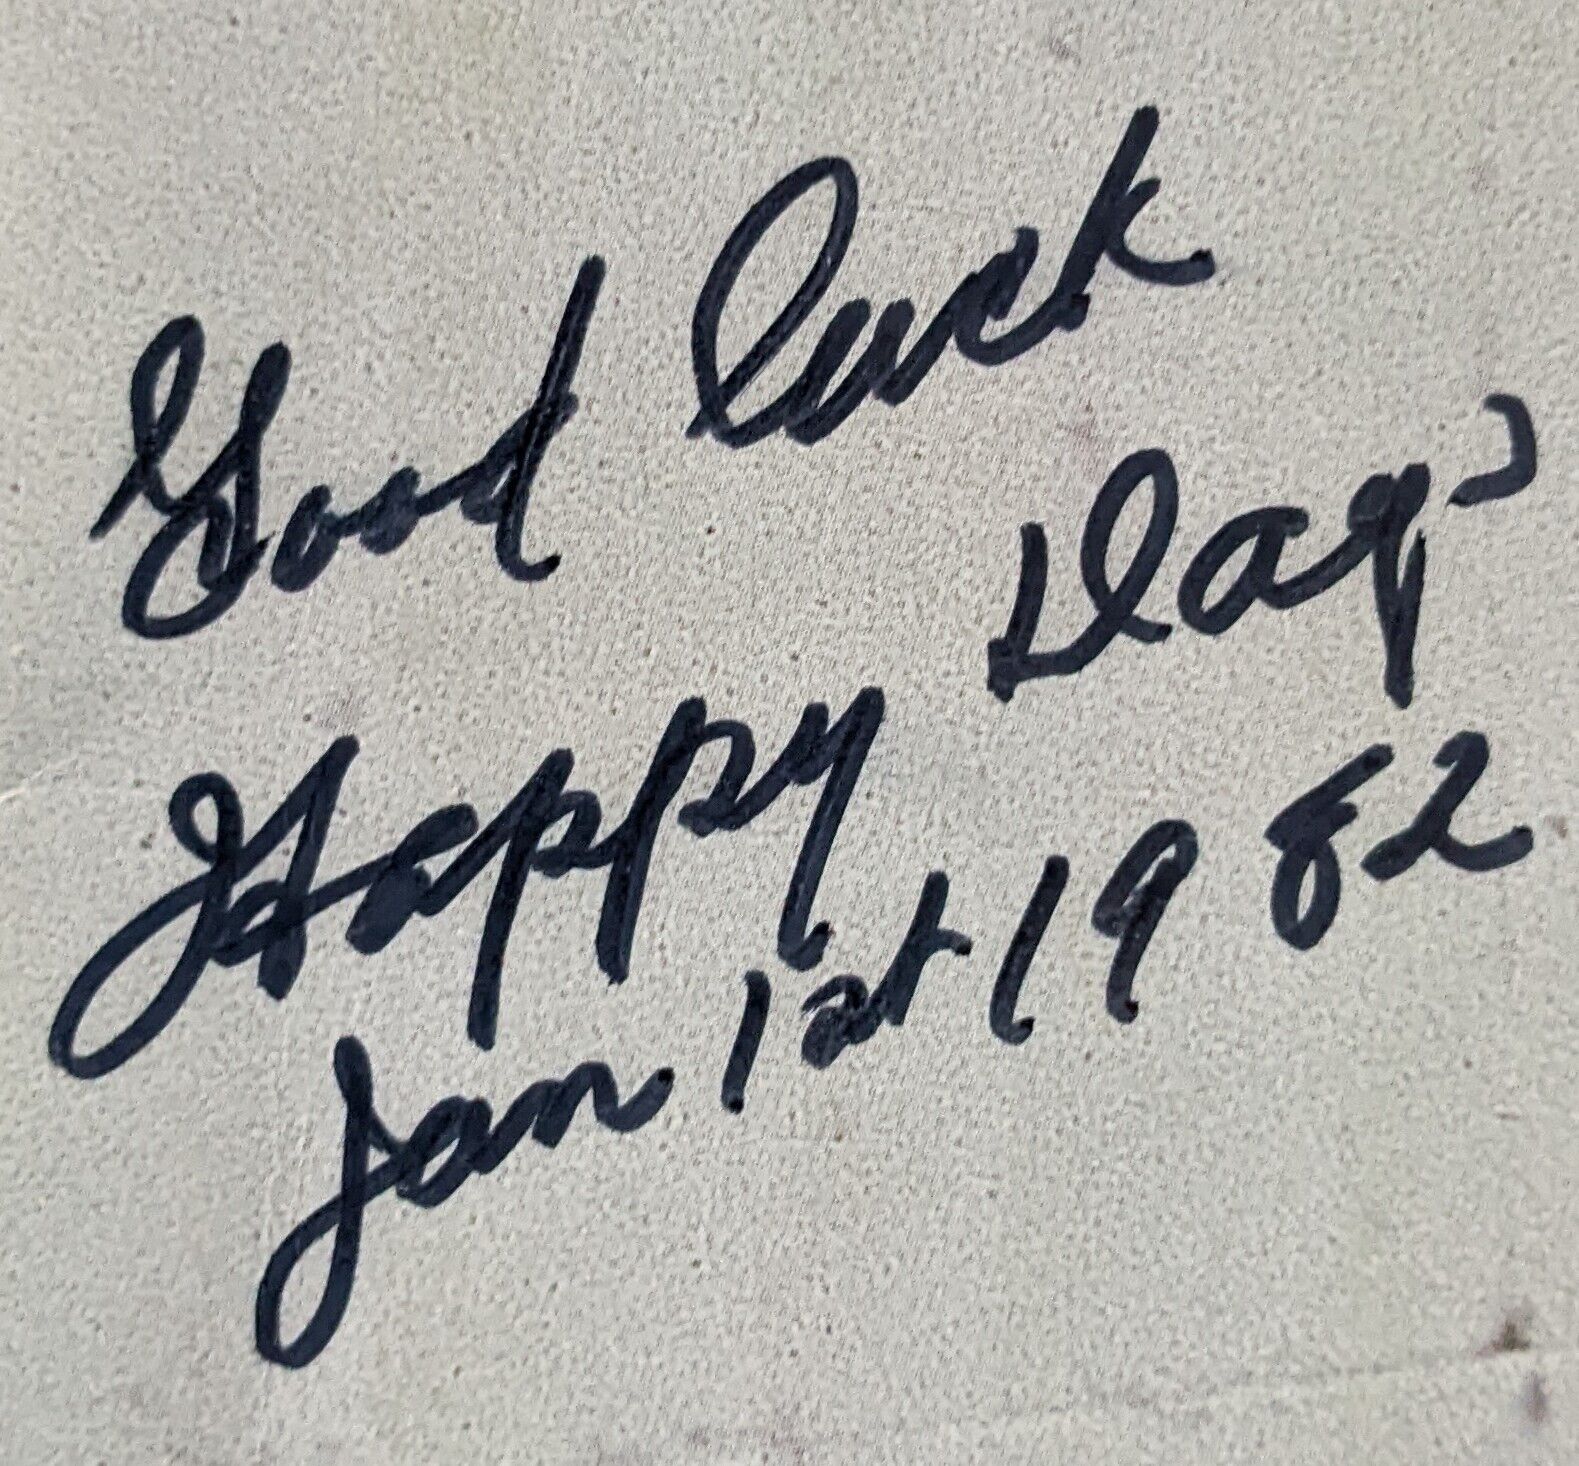 Good luck
Happy Days
Jan 1st 1982